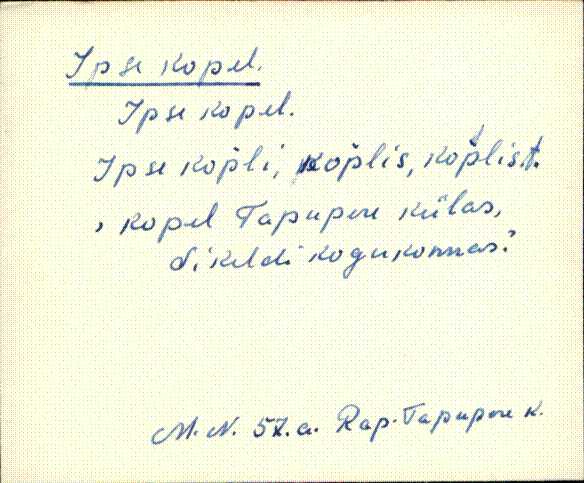 Ipse kopel.
Ipse kopel.
Ipse kop̆li, kop̆lis, kop̆list.
, kopel Tapupere külas,
Sikeldi kogukonnas.'
M. N. 57.a. Rap. Tapupere k.